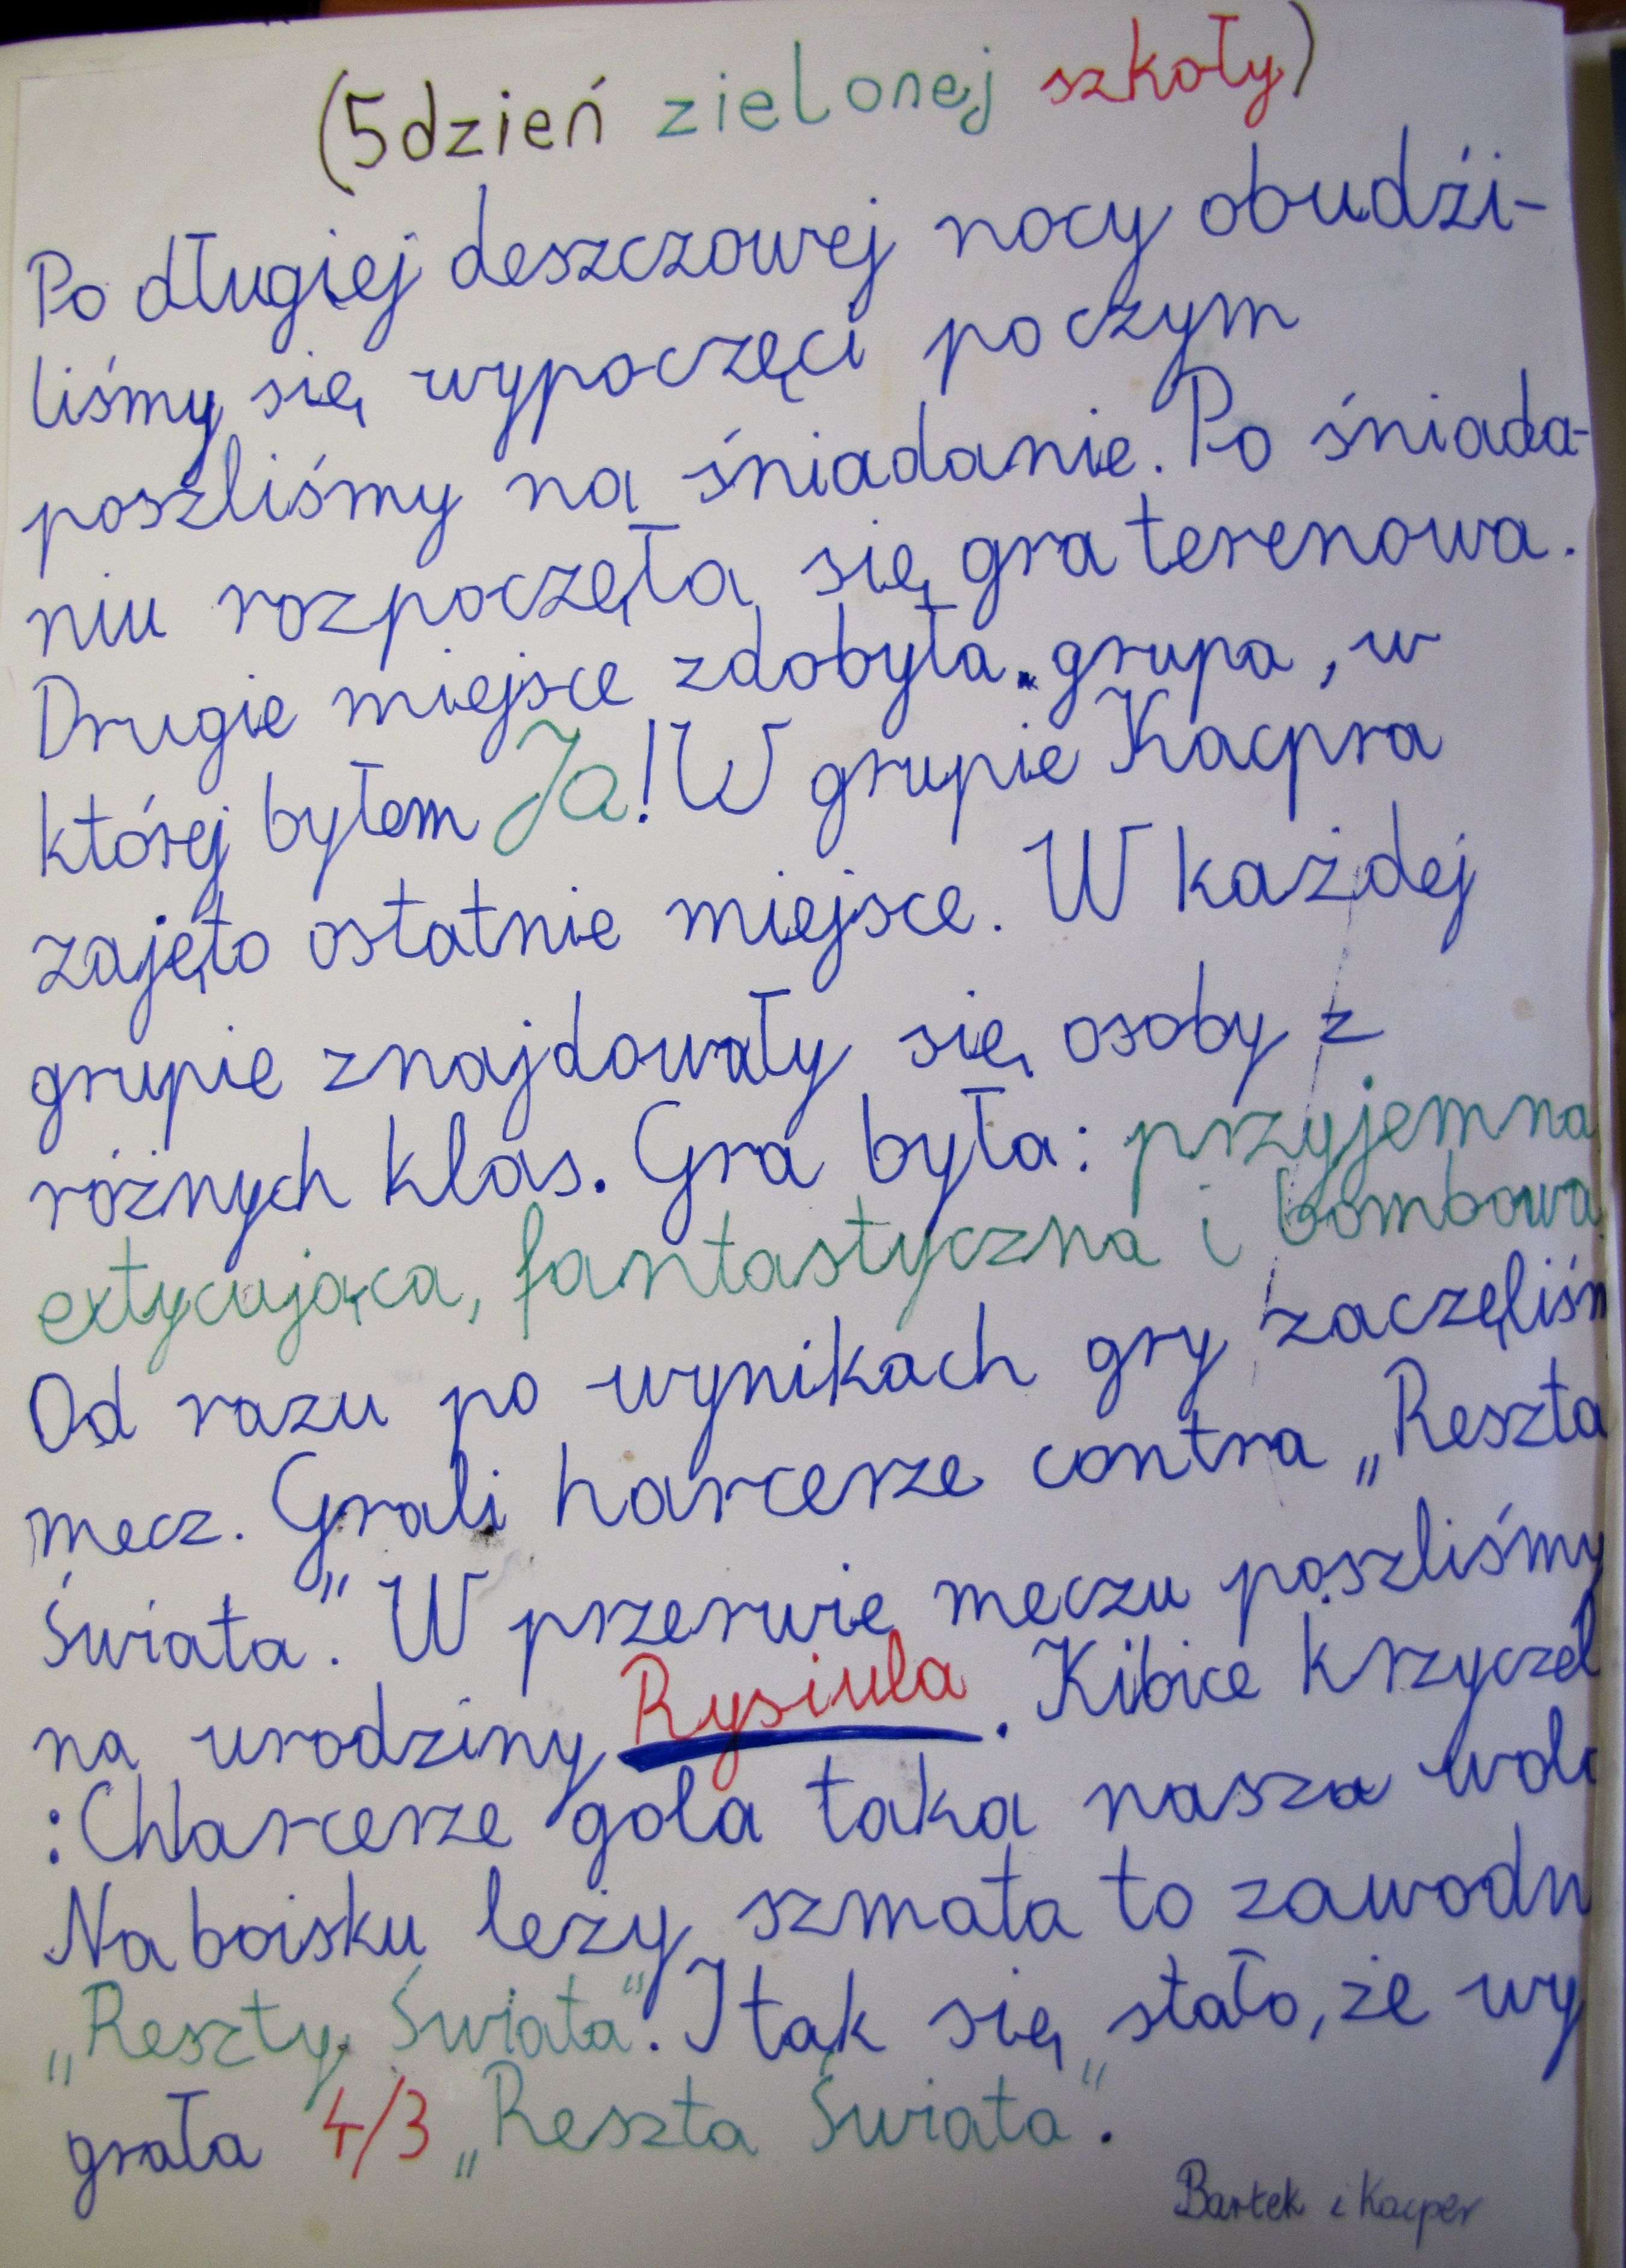 (5dzień zielonej szkoły)
Po długiej deszczowej nocy obudźi-
liśmy się wypoczęci poczym
poszliśmy na śniadanie. Po śniada-
niu rozpoczęła się gra terenowa.
Drugie miejsce zdobyła grupa, w
której byłem Ja! W grupie Kacpra
zajęto ostatnie miejsce. W każdej
grupie znajdowały się osoby z
różnych klas. Gra była: przyjemna
extycująca, fantastyczna i bombowa
Od razu po wynikach gry zaczęliśm
mecz. Grali harcerze contra „Reszta
Świata”. W przerwie meczu poszliśmy
na urodziny Rysiula. Kibice krzyczel
: Chlarcerze gola taka nasza wol
Na boisku leży szmata to zawodn
„Reszty Świata”. I tak się stało, że wy
grała 4/3 „Reszta Świata”.
Bartek i Kacper